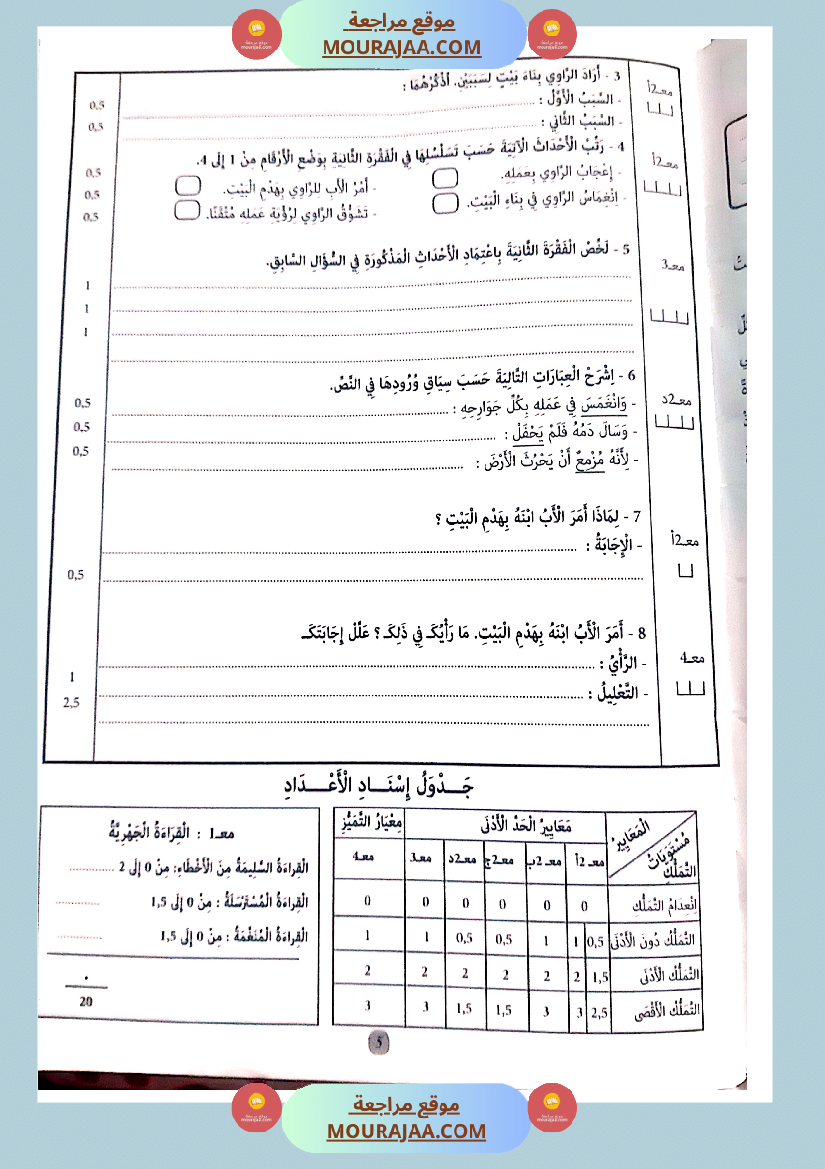 موقع مراجعة
MOURAJAA.COM
3 - أَرَادَ الرَّاوِي بِنَاءَ بَيْتٍ لِسَبَبَيْنِ. اُذْكُرْهُمَا :
معـ2أ
- السَّبَبُ الْأَوَّلُ : 0,5
- السَّبَبُ الثَّانِي : 0,5
4 - رَتِّبْ الْأَحْدَاثَ الْآتِيَةَ حَسَبَ تَسَلْسُلِهَا فِي الْفَقْرَةِ الثَّانِيَةِ بِوَضْعِ الْأَرْقَامِ مِنْ 1 إِلَى 4.
معـ2أ
- إِعْجَابُ الرَّاوِي بِعَمَلِهِ. - أَمْرُ الْأَبِ لِلرَّاوِي بِهَدْمِ الْبَيْتِ. 0,5
- اِنْغِمَاسُ الرَّاوِي فِي بِنَاءِ الْبَيْتِ. - تَشَوُّقُ الرَّاوِي لِرُؤْيَةِ عَمَلِهِ مُتْقَنًا. 0,5
0,5
5 - لَخِّصْ الْفَقْرَةَ الثَّانِيَةَ بِاعْتِمَادِ الْأَحْدَاثِ الْمَذْكُورَةِ فِي السُّؤَالِ السَّابِقِ.
معـ3
1
1
1
6 - اِشْرَحْ الْعِبَارَاتِ التَّالِيَةَ حَسَبَ سِيَاقِ وُرُودِهَا فِي النَّصِّ.
معـ2د
- وَانْغَمَسَ فِي عَمَلِهِ بِكُلِّ جَوَارِحِهِ : 0,5
- وَسَالَ دَمُهُ فَلَمْ يَحْفَلْ : 0,5
- لِأَنَّهُ مُزْمِعٌ أَنْ يَحْرُثَ الْأَرْضَ : 0,5
7 - لِمَاذَا أَمَرَ الْأَبُ ابْنَهُ بِهَدْمِ الْبَيْتِ ؟
معـ2أ
- الْإِجَابَةُ :
0,5
8 - أَمَرَ الْأَبُ ابْنَهُ بِهَدْمِ الْبَيْتِ. مَا رَأْيُكَ فِي ذَلِكَ ؟ عَلِّلْ إِجَابَتَكَ
معـ4
- الرَّأْيُ : 1
- التَّعْلِيلُ : 2,5
جَـــدْوَلُ إِسْنَـــادِ الْأَعْـــدَادِ
الْمَعَايِيرُ
مُسْتَوَيَاتُ التَّمَلُّكِ
مَعَايِيرُ الْحَدِّ الْأَدْنَى مِعْيَارُ التَّمَيُّزِ
معـ 2أ معـ 2ب معـ2ج معـ2د معـ3 معـ4
اِنْعِدَامُ التَّمَلُّكِ 0 0 0 0 0 0
التَّمَلُّكُ دُونَ الْأَدْنَى 0,5 1 1 0,5 0,5 1 1
التَّمَلُّكُ الْأَدْنَى 1,5 2 2 2 2 2 2
التَّمَلُّكُ الْأَقْصَى 2,5 3 3 1,5 1,5 3 3
معـ1 : الْقِرَاءَةُ الْجَهْرِيَّةُ
الْقِرَاءَةُ السَّلِيمَةُ مِنَ الْأَخْطَاءِ: مِنْ 0 إِلَى 2
الْقِرَاءَةُ الْمُسْتَرْسَلَةُ : مِنْ 0 إِلَى 1,5
الْقِرَاءَةُ الْمُنَغَّمَةُ : مِنْ 0 إِلَى 1,5
20
5
موقع مراجعة
MOURAJAA.COM